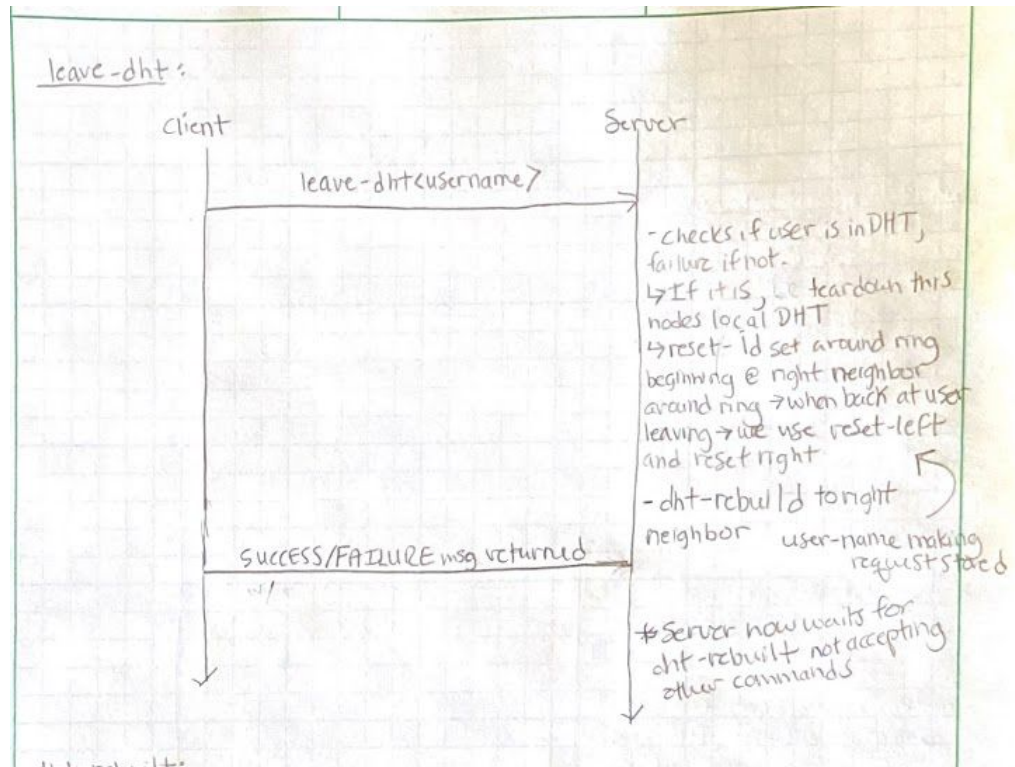 leave-dht:
Client
Server
leave-dht<username>
- checks if user is in DHT,
failure if not.
↳ If it is, teardown this
nodes local DHT
↳ reset-id set around ring
beginning @ right neighbor
around ring → when back at user
leaving → we use reset-left
and reset right
- dht-rebuild to right
neighbor
user-name making
request stored
SUCCESS/FAILURE msg returned
w/
* Server now waits for
dht-rebuilt not accepting
other commands